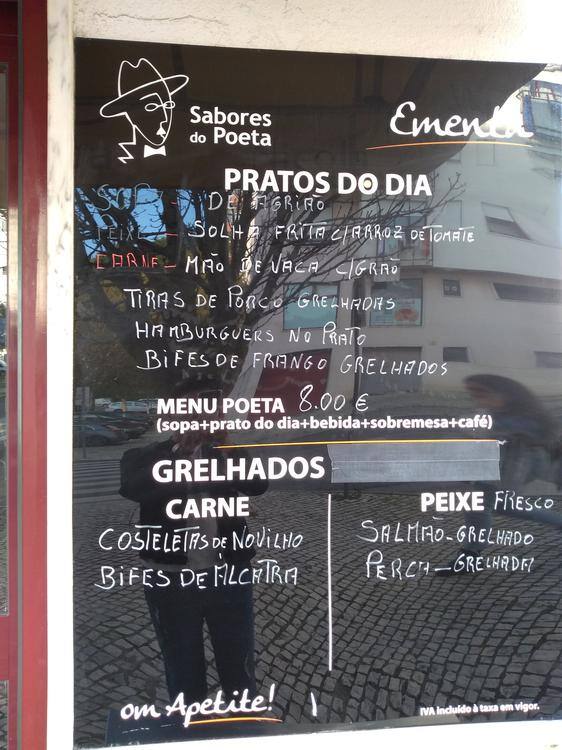 Sabores
do Poeta
Ementa
PRATOS DO DIA
SOPA - DE AGRIÃO
PEIXE - SOLHA FRITA C/ARROZ DE TOMATE
CARNE - MÃO DE VACA C/GRÃO
TIRAS DE PORCO GRELHADAS
HAMBURGUERS NO PRATO
BIFES DE FRANGO GRELHADOS
MENU POETA 8.00 €
(sopa+prato do dia+bebida+sobremesa+café)
GRELHADOS
CARNE
COSTELETAS DE NOVILHO
BIFES DE ALCATRA
PEIXE FRESCO
SALMÃO - GRELHADO
PERCA - GRELHADA
om Apetite!
IVA incluído à taxa em vigor.